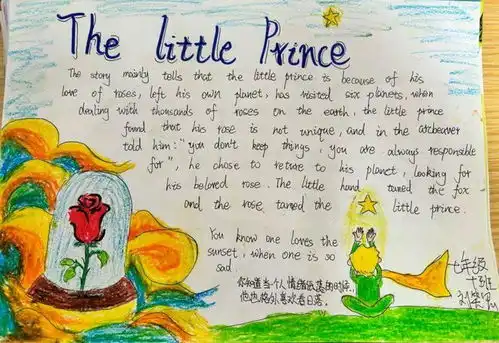 The little Prince
The story mainly tells that the little prince is because of his
love of roses, left his own planet, has visited six planets, when
dealing with thousands of roses on the earth, the little prince
found that his rose is not unique, and in the
told him: "you don't keep things, you are always responsible
for", he chose to return to his planet, looking for
his beloved rose. The little hand tamed the fox
and the rose tamed the little prince.
You know one loves the
sunset, when one is so
sad
你知道当一个人情绪低落的时候,
他也格外喜欢看日落。
七年级
十班
刘